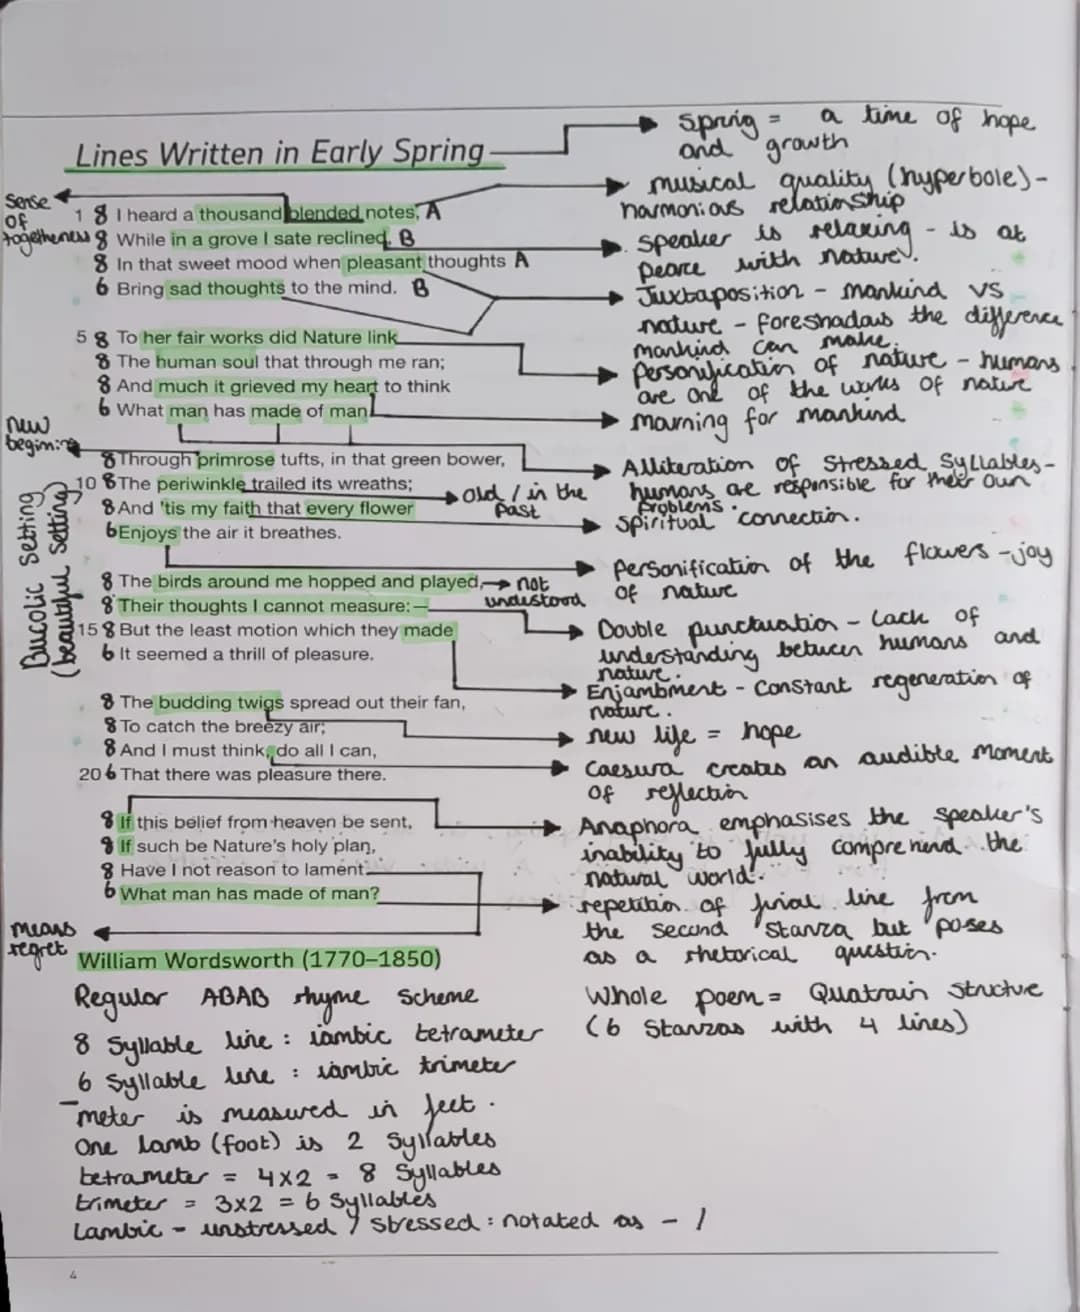 Lines Written in Early Spring
Spring = a time of hope
and growth
musical quality (hyperbole) -
harmonious relationship
Sense
of
togetheness
1 8 I heard a thousand blended notes, A
8 While in a grove I sate reclined, B
8 In that sweet mood when pleasant thoughts A
6 Bring sad thoughts to the mind. B
speaker is relaxing - is at
peace with nature.
Juxtaposition - mankind vs
nature - foreshadows the difference
mankind can make.
5 8 To her fair works did Nature link
8 The human soul that through me ran;
8 And much it grieved my heart to think
6 What man has made of man.
Personification of nature - humans
are one of the works of nature
mourning for mankind
new
begining
8 Through primrose tufts, in that green bower,
10 8 The periwinkle trailed its wreaths;
8 And 'tis my faith that every flower
6 Enjoys the air it breathes.
old / in the
past
Alliteration of Stressed Syllables -
humans are responsible for their own
problems.
Spiritual connection.
Personification of the flowers - joy
of nature
Bucolic Setting
(beautiful Setting)
8 The birds around me hopped and played,
8 Their thoughts I cannot measure:—
15 8 But the least motion which they made
6 It seemed a thrill of pleasure.
not
understood
Double punctuation - Lack of
understanding between humans and
nature.
Enjambment - Constant regeneration of
nature.
8 The budding twigs spread out their fan,
8 To catch the breezy air;
8 And I must think, do all I can,
20 6 That there was pleasure there.
new life = hope
Caesura creates an audible moment
of reflection
8 If this belief from heaven be sent,
8 If such be Nature's holy plan,
8 Have I not reason to lament
6 What man has made of man?
Anaphora emphasises the speaker's
inability to fully comprehend the
natural world.
repetition of final line from
the second Stanza but poses
as a rhetorical question.
means
regret
William Wordsworth (1770–1850)
Regular ABAB rhyme scheme
8 Syllable line : iambic tetrameter
6 Syllable line : iambic trimeter
meter is measured in feet.
One Iamb (foot) is 2 Syllables
tetrameter = 4x2 = 8 Syllables
trimeter = 3x2 = 6 Syllables
Iambic - unstressed / stressed : notated as - /
Whole poem = Quatrain structure
(6 Stanzas with 4 lines)
4